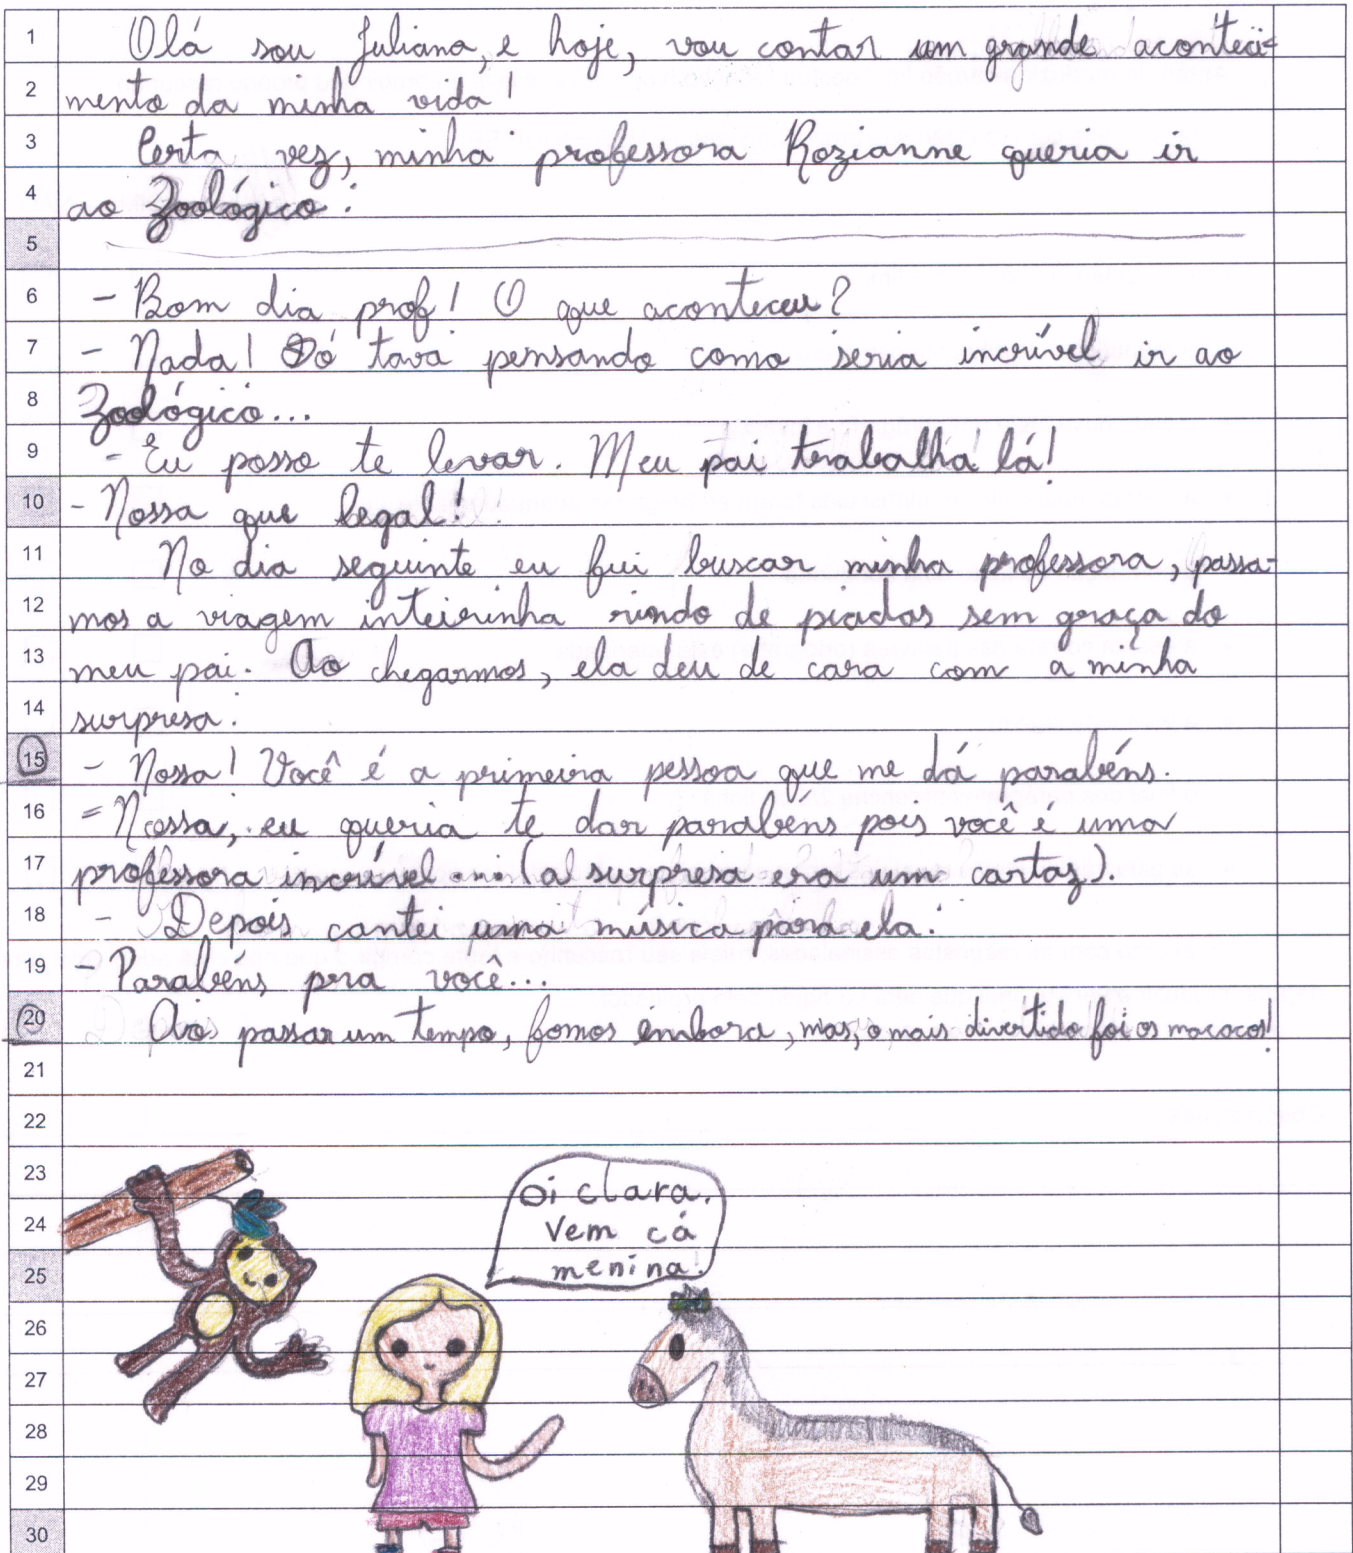 1 Olá sou Juliana, e hoje, vou contar um grande aconteci-
2 mento da minha vida!
3 Certa vez, minha professora Rozianne queria ir
4 ao Zoológico:
5
6 - Bom dia prof! O que aconteceu?
7 - Nada! Só tava pensando como seria incrível ir ao
8 Zoológico...
9 - Eu posso te levar. Meu pai trabalha lá!
10 - Nossa que legal!
11 No dia seguinte eu fui buscar minha professora, passa-
12 mos a viagem inteirinha rindo de piadas sem graça do
13 meu pai. Ao chegarmos, ela deu de cara com a minha
14 surpresa:
15 - Nossa! Você é a primeira pessoa que me dá parabéns.
16 = Nossa, eu queria te dar parabéns pois você é uma
17 professora incrível... (a surpresa era um cartaz).
18 - Depois cantei uma música para ela:
19 - Parabéns pra você...
20 Ao passar um tempo, fomos embora, mas, o mais divertido foi os macacos!
21
22
23
24
25
26
27
28
29
30
oi clara.
Vem cá
menina!